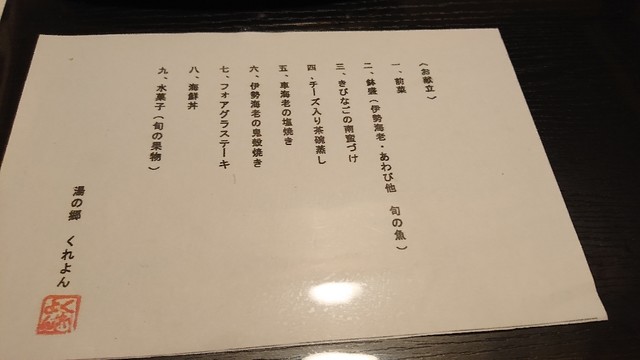 （お献立）
一、前菜
二、鉢盛（伊勢海老・あわび他　旬の魚）
三、きびなごの南蛮づけ
四、チーズ入り茶碗蒸し
五、車海老の塩焼き
六、伊勢海老の鬼殻焼き
七、フォアグラステーキ
八、海鮮丼
九、水菓子（旬の果物）
湯の郷　くれよん
くれよん